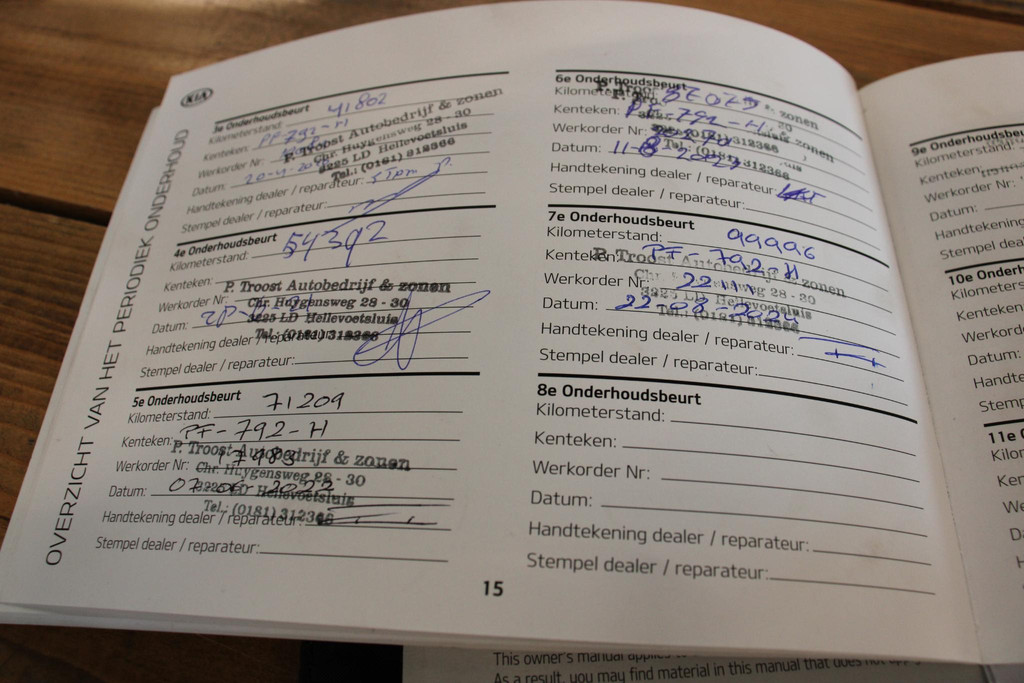 OVERZICHT VAN HET PERIODIEK ONDERHOUD
KIA
3e Onderhoudsbeurt
Kilometerstand: 41802
Kenteken: PF-792-H
Werkorder Nr:
P. Troost Autobedrijf & zonen
Chr. Huygensweg 28 - 30
3225 LD Hellevoetsluis
Tel.: (0181) 312366
Datum:
Handtekening dealer / reparateur:
Stempel dealer / reparateur:
4e Onderhoudsbeurt
Kilometerstand: 54392
Kenteken:
P. Troost Autobedrijf & zonen
Werkorder Nr:
Chr. Huygensweg 28 - 30
3225 LD Hellevoetsluis
Datum:
Tel.: (0181) 312366
Handtekening dealer / reparateur:
Stempel dealer / reparateur:
5e Onderhoudsbeurt
Kilometerstand: 71209
Kenteken: PF-792-H
P. Troost Autobedrijf & zonen
Werkorder Nr: 17983
Chr. Huygensweg 28 - 30
Datum: 07-06-2022
3225 LD Hellevoetsluis
Tel.: (0181) 312366
Handtekening dealer / reparateur:
Stempel dealer / reparateur:
6e Onderhoudsbeurt
Kilometerstand:
Kenteken: PF-792-H
Werkorder Nr:
Tel.: (0181) 312366
Datum:
Handtekening dealer / reparateur:
Stempel dealer / reparateur:
7e Onderhoudsbeurt
Kilometerstand: 99996
Kenteken: PF-792-H
P. Troost Autobedrijf & zonen
Werkorder Nr:
Chr. Huygensweg 28 - 30
3225 LD Hellevoetsluis
Datum: 22-08-2024
Tel.: (0181) 312366
Handtekening dealer / reparateur:
Stempel dealer / reparateur:
8e Onderhoudsbeurt
Kilometerstand:
Kenteken:
Werkorder Nr:
Datum:
Handtekening dealer / reparateur:
Stempel dealer / reparateur:
15
9e Onderhoudsbeu
Kilometerstand:
Kenteken:
Werkorder Nr:
Datum:
Handtekening
Stempel dealer
10e Onderh
Kilometers
Kenteken:
Werkorde
Datum:
Handte
Stemp
11e O
Kilor
Ken
We
D
This owner's manual applies to
As a result, you may find material in this manual that does not